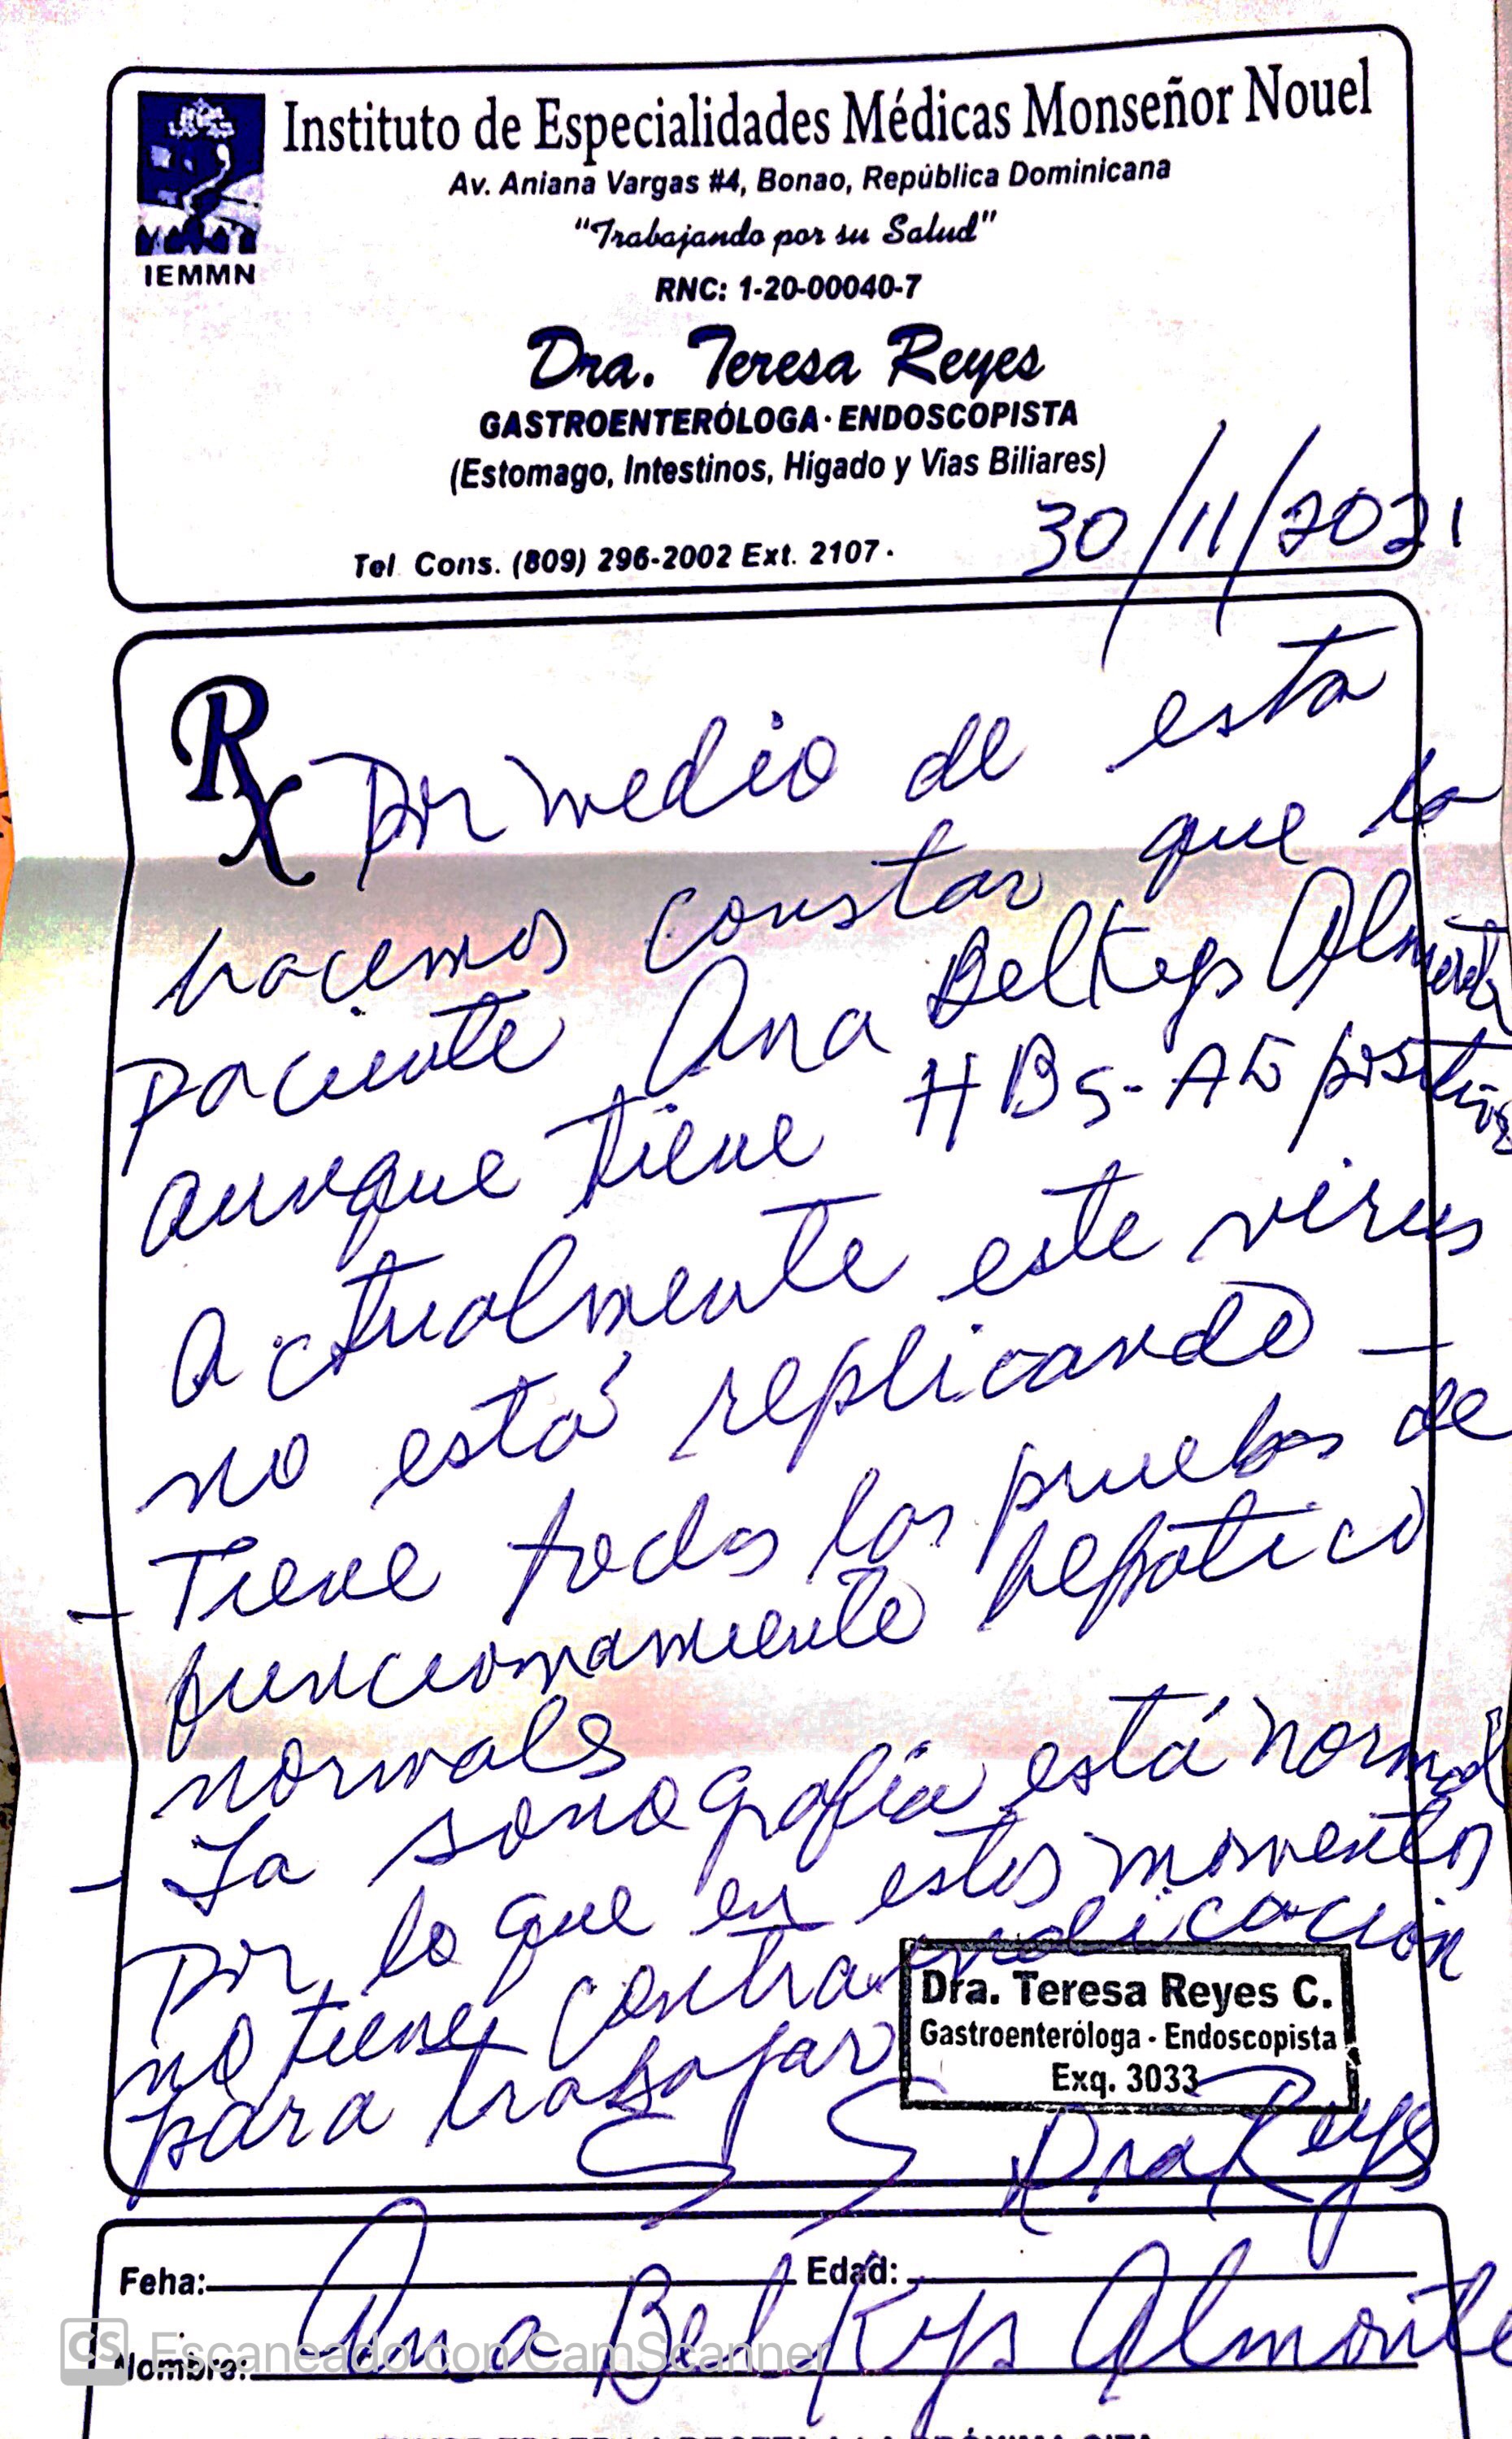 Instituto de Especialidades Médicas Monseñor Nouel
Av. Aniana Vargas #4, Bonao, República Dominicana
"Trabajando por su Salud"
IEMMN
RNC: 1-20-00040-7
Dra. Teresa Reyes
GASTROENTERÓLOGA · ENDOSCOPISTA
(Estomago, Intestinos, Higado y Vias Biliares)
Tel. Cons. (809) 296-2002 Ext. 2107.
30/11/2021
Rx
Por medio de esta
hacemos constar que la
paciente Ana Belkys Almonte
aunque tiene HBs-Ab positivo
actualmente este virus
no está replicando -
- Tiene todas las pruebas de
funcionamiento hepático
normales
- La sonografía está normal
Por lo que en estos momentos
no tiene contraindicación
para trabajar
Dra. Teresa Reyes C.
Gastroenteróloga - Endoscopista
Exq. 3033
Dra Reyes
Feha: Edad:
Nombre: Ana Belkys Almonte
CS Escaneado con CamScanner